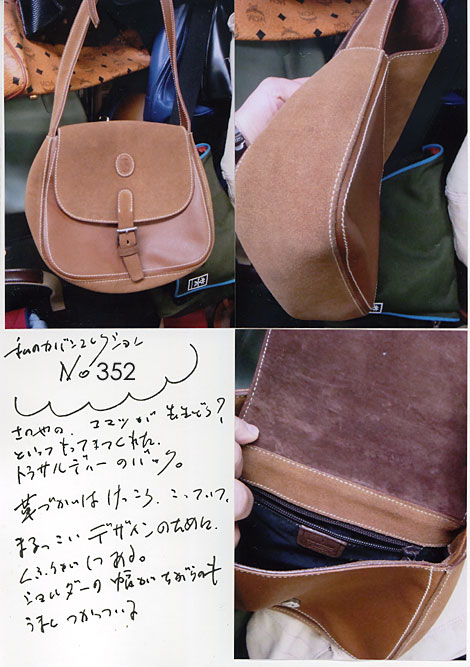 私のカバンコレクション
No 352
さのやの、コマツが もちどう?
といってもってきてくれた、
トラサルディーのバック。
革づかいは けっこう、こっていて、
まるっこい デザインのために
くふうが してある。
ショルダーの 幅が ちがうのも
うまく つかっている